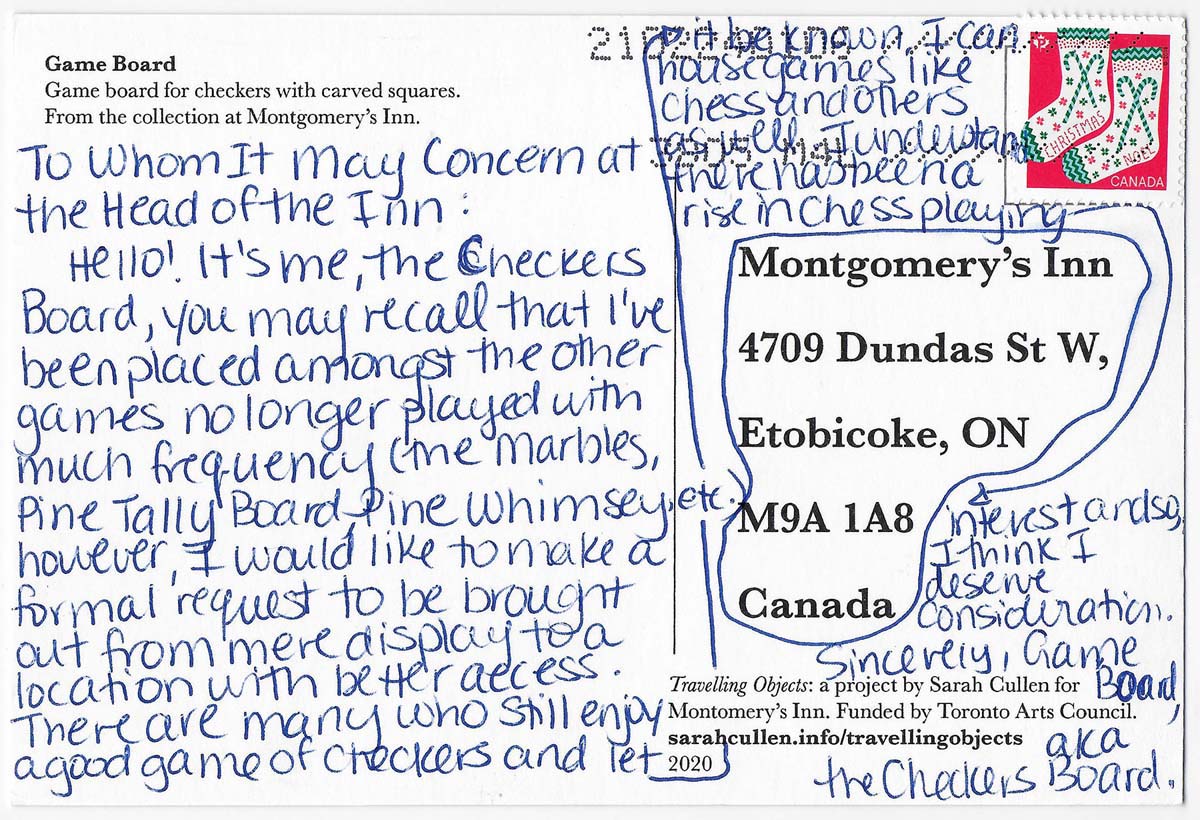 Game Board
Game board for checkers with carved squares.
From the collection at Montgomery's Inn.
To Whom It May Concern at
the Head of the Inn:
Hello! It's me, the Checkers
Board, you may recall that I've
been placed amongst the other
games no longer played with
much frequency (the Marbles,
Pine Tally Board, Pine Whimsey, etc.)
however, I would like to make a
formal request to be brought
out from mere display to a
location with better access.
There are many who still enjoy
a good game of checkers and let
it be known, I can
house games like
chess and others
as well. I understand
there has been a
rise in chess playing
interest and so,
I think I
deserve
consideration.
Sincerely, Game
Board,
aka
the Checkers Board.
Montgomery's Inn
4709 Dundas St W,
Etobicoke, ON
M9A 1A8
Canada
Travelling Objects: a project by Sarah Cullen for
Montomery's Inn. Funded by Toronto Arts Council.
sarahcullen.info/travellingobjects
2020
CHRISTMAS
NOËL
CANADA
P